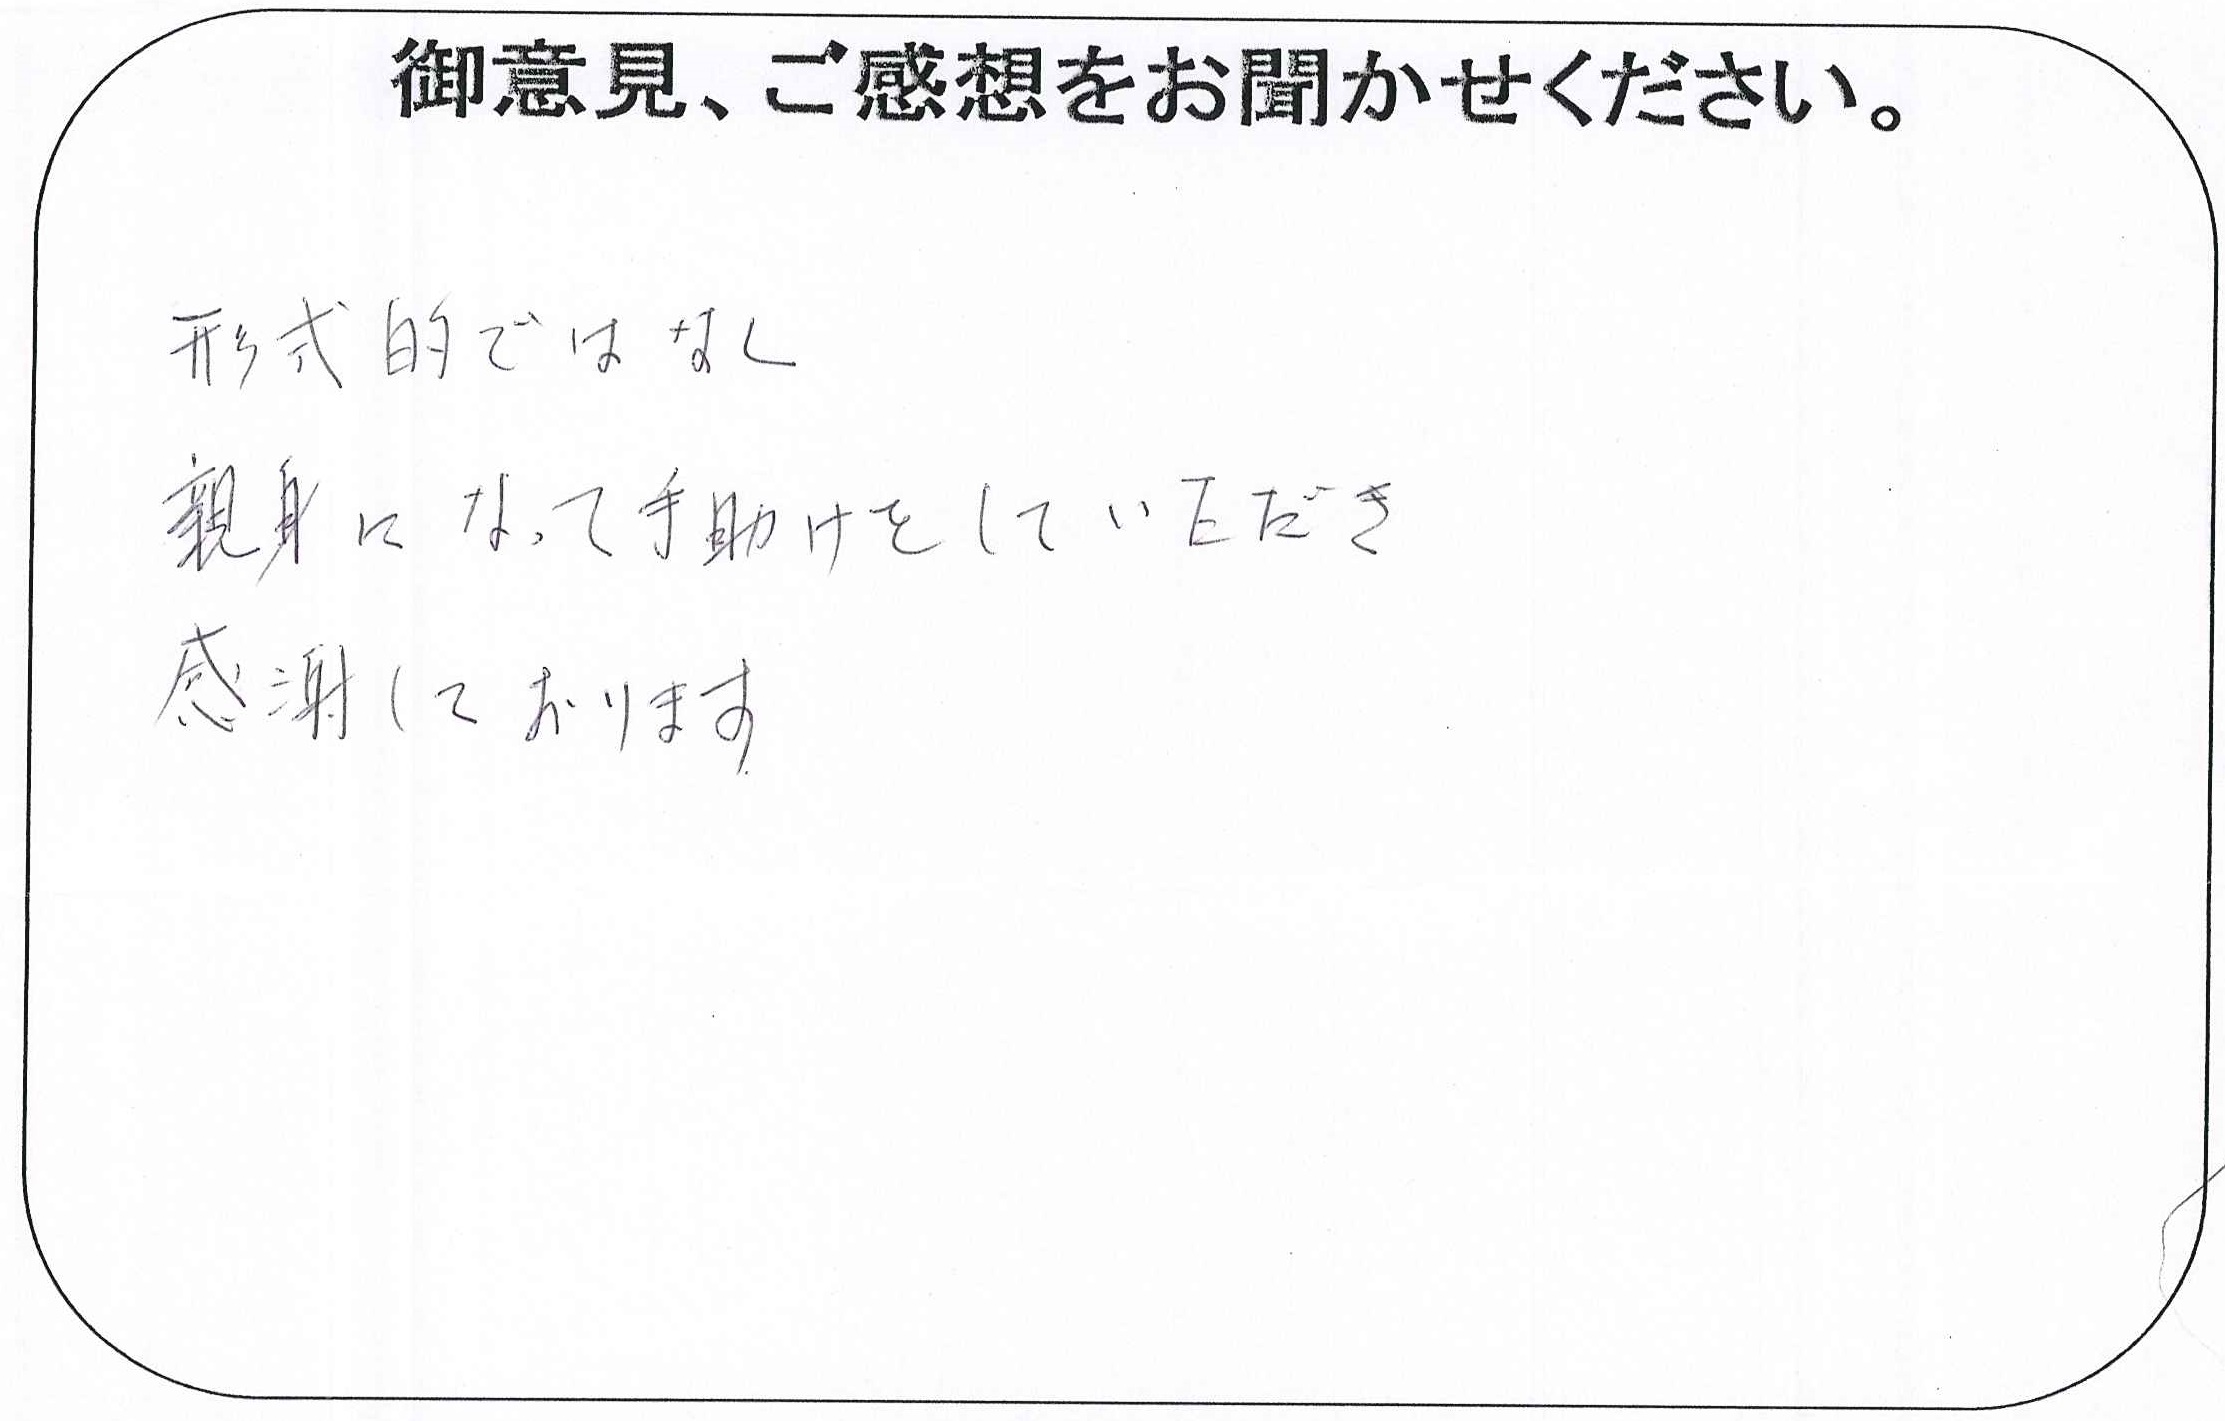 御意見、ご感想をお聞かせください。
形式的ではなし
親身になって手助けをしていただき
感謝しております